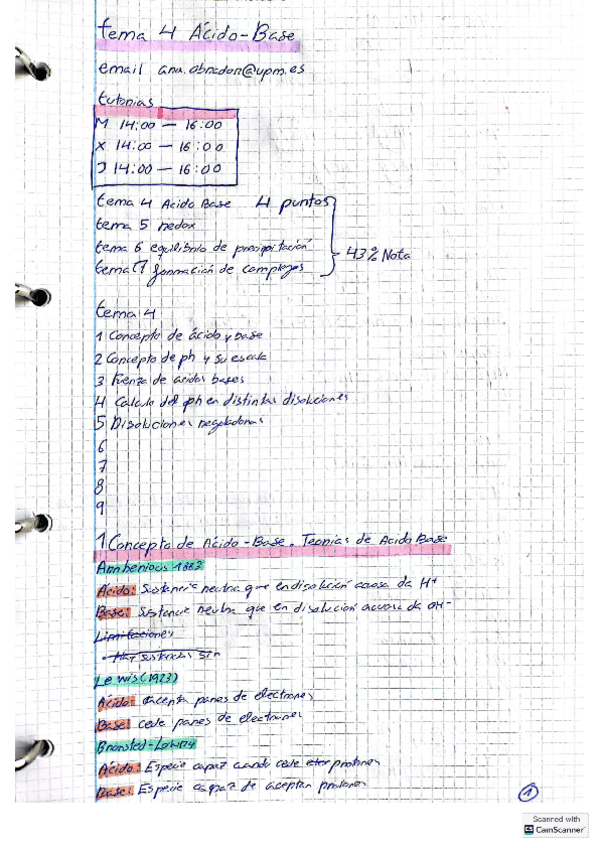 tema 4 Ácido-Base
email ana.obrador@upm.es
tutorias
M 14:00 — 16:00
X 14:00 — 16:00
J 14:00 — 16:00
tema 4 Acido Base 4 puntos
tema 5 redox
tema 6 equilibrio de precipitación
tema 7 formación de complejos
43% Nota
tema 4
1 Concepto de ácido y base
2 Concepto de ph y su escala
3 Fuerza de acidos bases
4 Calculo del ph en distintas disoluciones
5 Disoluciones reguladoras
6
7
8
9
1 Concepto de Ácido-Base. Teorias de Acido Base
Arrhenious 1883
Ácido: Sustancia neutra que en disolución acuosa da H+
Base: Sustancia neutra que en disolución acuosa da OH-
Limitaciones
• Hay sustancias sin
Lewis (1923)
Ácido: acepta pares de electrones
Base: cede pares de electrones
Bronsted-Lowry
Ácido: Especie capaz cede protones
Base: Especie capaz de aceptar protones
1
Scanned with
CS CamScanner